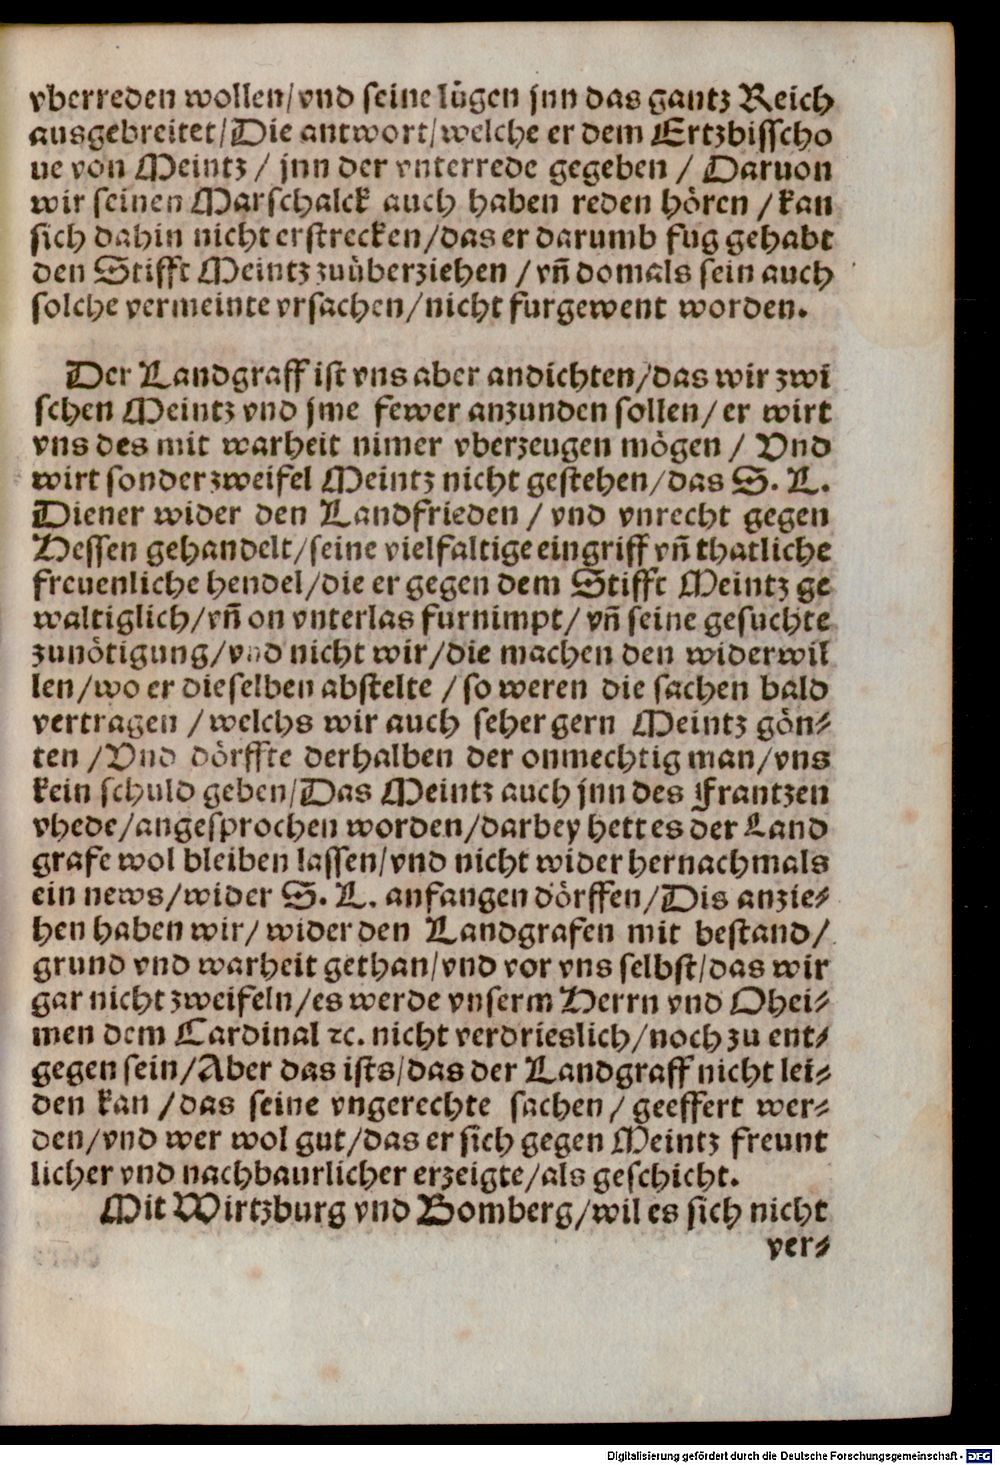 vberreden wollen/vnd seine lügen jnn das gantz Reich
ausgebreitet/Die antwort/welche er dem Ertzbisscho
ue von Meintz / jnn der vnterrede gegeben / Daruon
wir seinen Marschalck auch haben reden hören / kan
sich dahin nicht erstrecken/das er darumb fug gehabt
den Stifft Meintz zuüberziehen / vñ domals sein auch
solche vermeinte vrsachen/nicht furgewent worden.
Der Landgraff ist vns aber andichten/das wir zwi
schen Meintz vnd jme fewer anzunden sollen/er wirt
vns des mit warheit nimer vberzeugen mögen / Vnd
wirt sonder zweifel Meintz nicht gestehen/das S. L.
Diener wider den Landfrieden / vnd vnrecht gegen
Hessen gehandelt/seine vielfaltige eingriff vñ thatliche
freuenliche hendel/die er gegen dem Stifft Meintz ge
waltiglich/vñ on vnterlas furnimpt/ vñ seine gesuchte
zunötigung/vnd nicht wir/die machen den widerwil
len/wo er dieselben abstelte / so weren die sachen bald
vertragen / welchs wir auch seher gern Meintz gön⸗
ten / Vnd dörffte derhalben der onmechtig man/vns
kein schuld geben/Das Meintz auch jnn des Frantzen
vhede/angesprochen worden/darbey hett es der Land
grafe wol bleiben lassen/vnd nicht wider hernachmals
ein news/wider S. L. anfangen dörffen/Dis anzie⸗
hen haben wir/ wider den Landgrafen mit bestand/
grund vnd warheit gethan/vnd vor vns selbst/das wir
gar nicht zweifeln/es werde vnserm Herrn vnd Ohei⸗
men dem Cardinal ⁊c. nicht verdrieslich/noch zu ent⸗
gegen sein/Aber das ists/das der Landgraff nicht lei⸗
den kan / das seine vngerechte sachen / geeffert wer⸗
den/vnd wer wol gut/das er sich gegen Meintz freunt
licher vnd nachbaurlicher erzeigte/als geschicht.
Mit Wirtzburg vnd Bomberg/wil es sich nicht
ver⸗
Digitalisierung gefördert durch die Deutsche Forschungsgemeinschaft - DFG